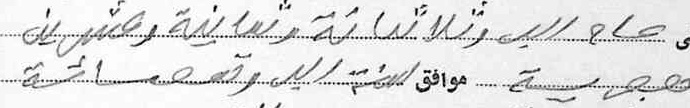 ى عام الف وثلاثمائة وثمانية وعشرين
هجرية موافق لسنة الف وتسعمائة